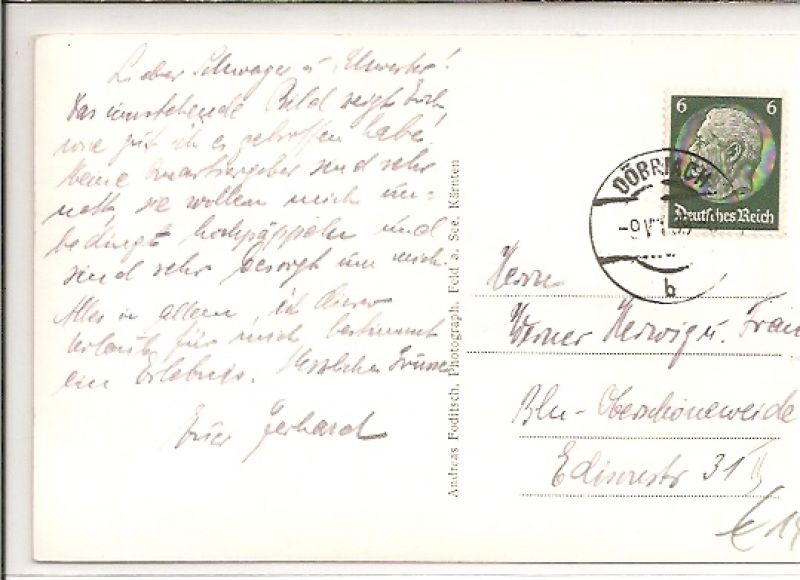 Lieber Schwager u. Schwester!
Das umstehende Bild zeigt Euch,
wie gut ich es getroffen habe!
Meine Quartiergeber sind sehr
nett, sie wollen mich un=
bedingt hochpäppeln und
sind sehr besorgt um mich.
Alles in allem, ist dieser
Urlaub für mich bestimmt
ein Erlebnis. Herzlichen Grüsse
Euer Gerhard
Andreas Foditsch, Photograph. Feld a. See. Kärnten
6 6
Deutsches Reich
DÖBRIACH
b
Herrn
Werner Herwig u. Frau
Bln-Oberschöneweide
Edisonstr 31